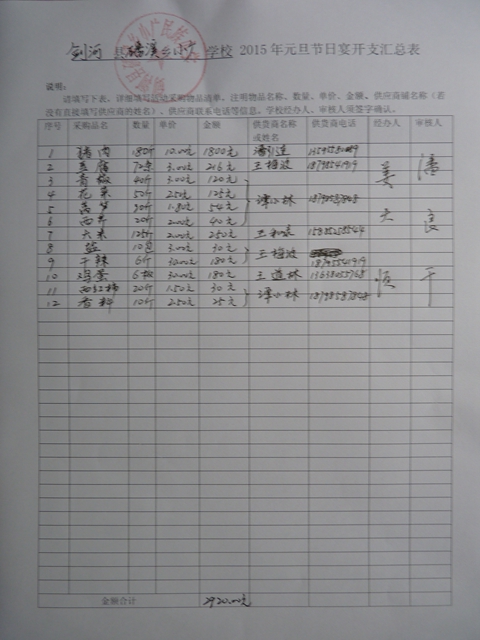 剑河 县 磻溪 乡 小广 学校 2015年元旦节日宴开支汇总表
说明:
请填写下表,详细填写活动采购物品清单,注明物品名称、数量、单价、金额、供应商铺名称(若
没有直接填写供应商的姓名)、供应商联系电话等信息,学校经办人、审核人须签字确认。
序号 采购品名 数量 单价 金额 供货商名称或姓名 供货商电话 经办人 审核人
1 猪肉 180斤 10.00元 1800元
2 豆腐 72条 3.00元 216元 王梅波 18785541919
3 青椒 40斤 3.00元 120元
4 花菜 50斤 2.50元 125元 谭小林 18798587848
5 莴笋 30斤 1.80元 54元
6 西芹 20斤 2.00元 40元
7 大米 125斤 2.00元 250元
8 盐 10包 3.00元 30元 王梅波
9 干辣 6斤 30.00元 180元 18785541919
10 鸡蛋 6板 30.00元 180元 王道林 13638055768
11 西红柿 20斤 1.50元 30元 谭小林 18798587848
12 香料 10斤 2.50元 25元
姜 大 恒
潘 良 平
金额合计 2920.00元